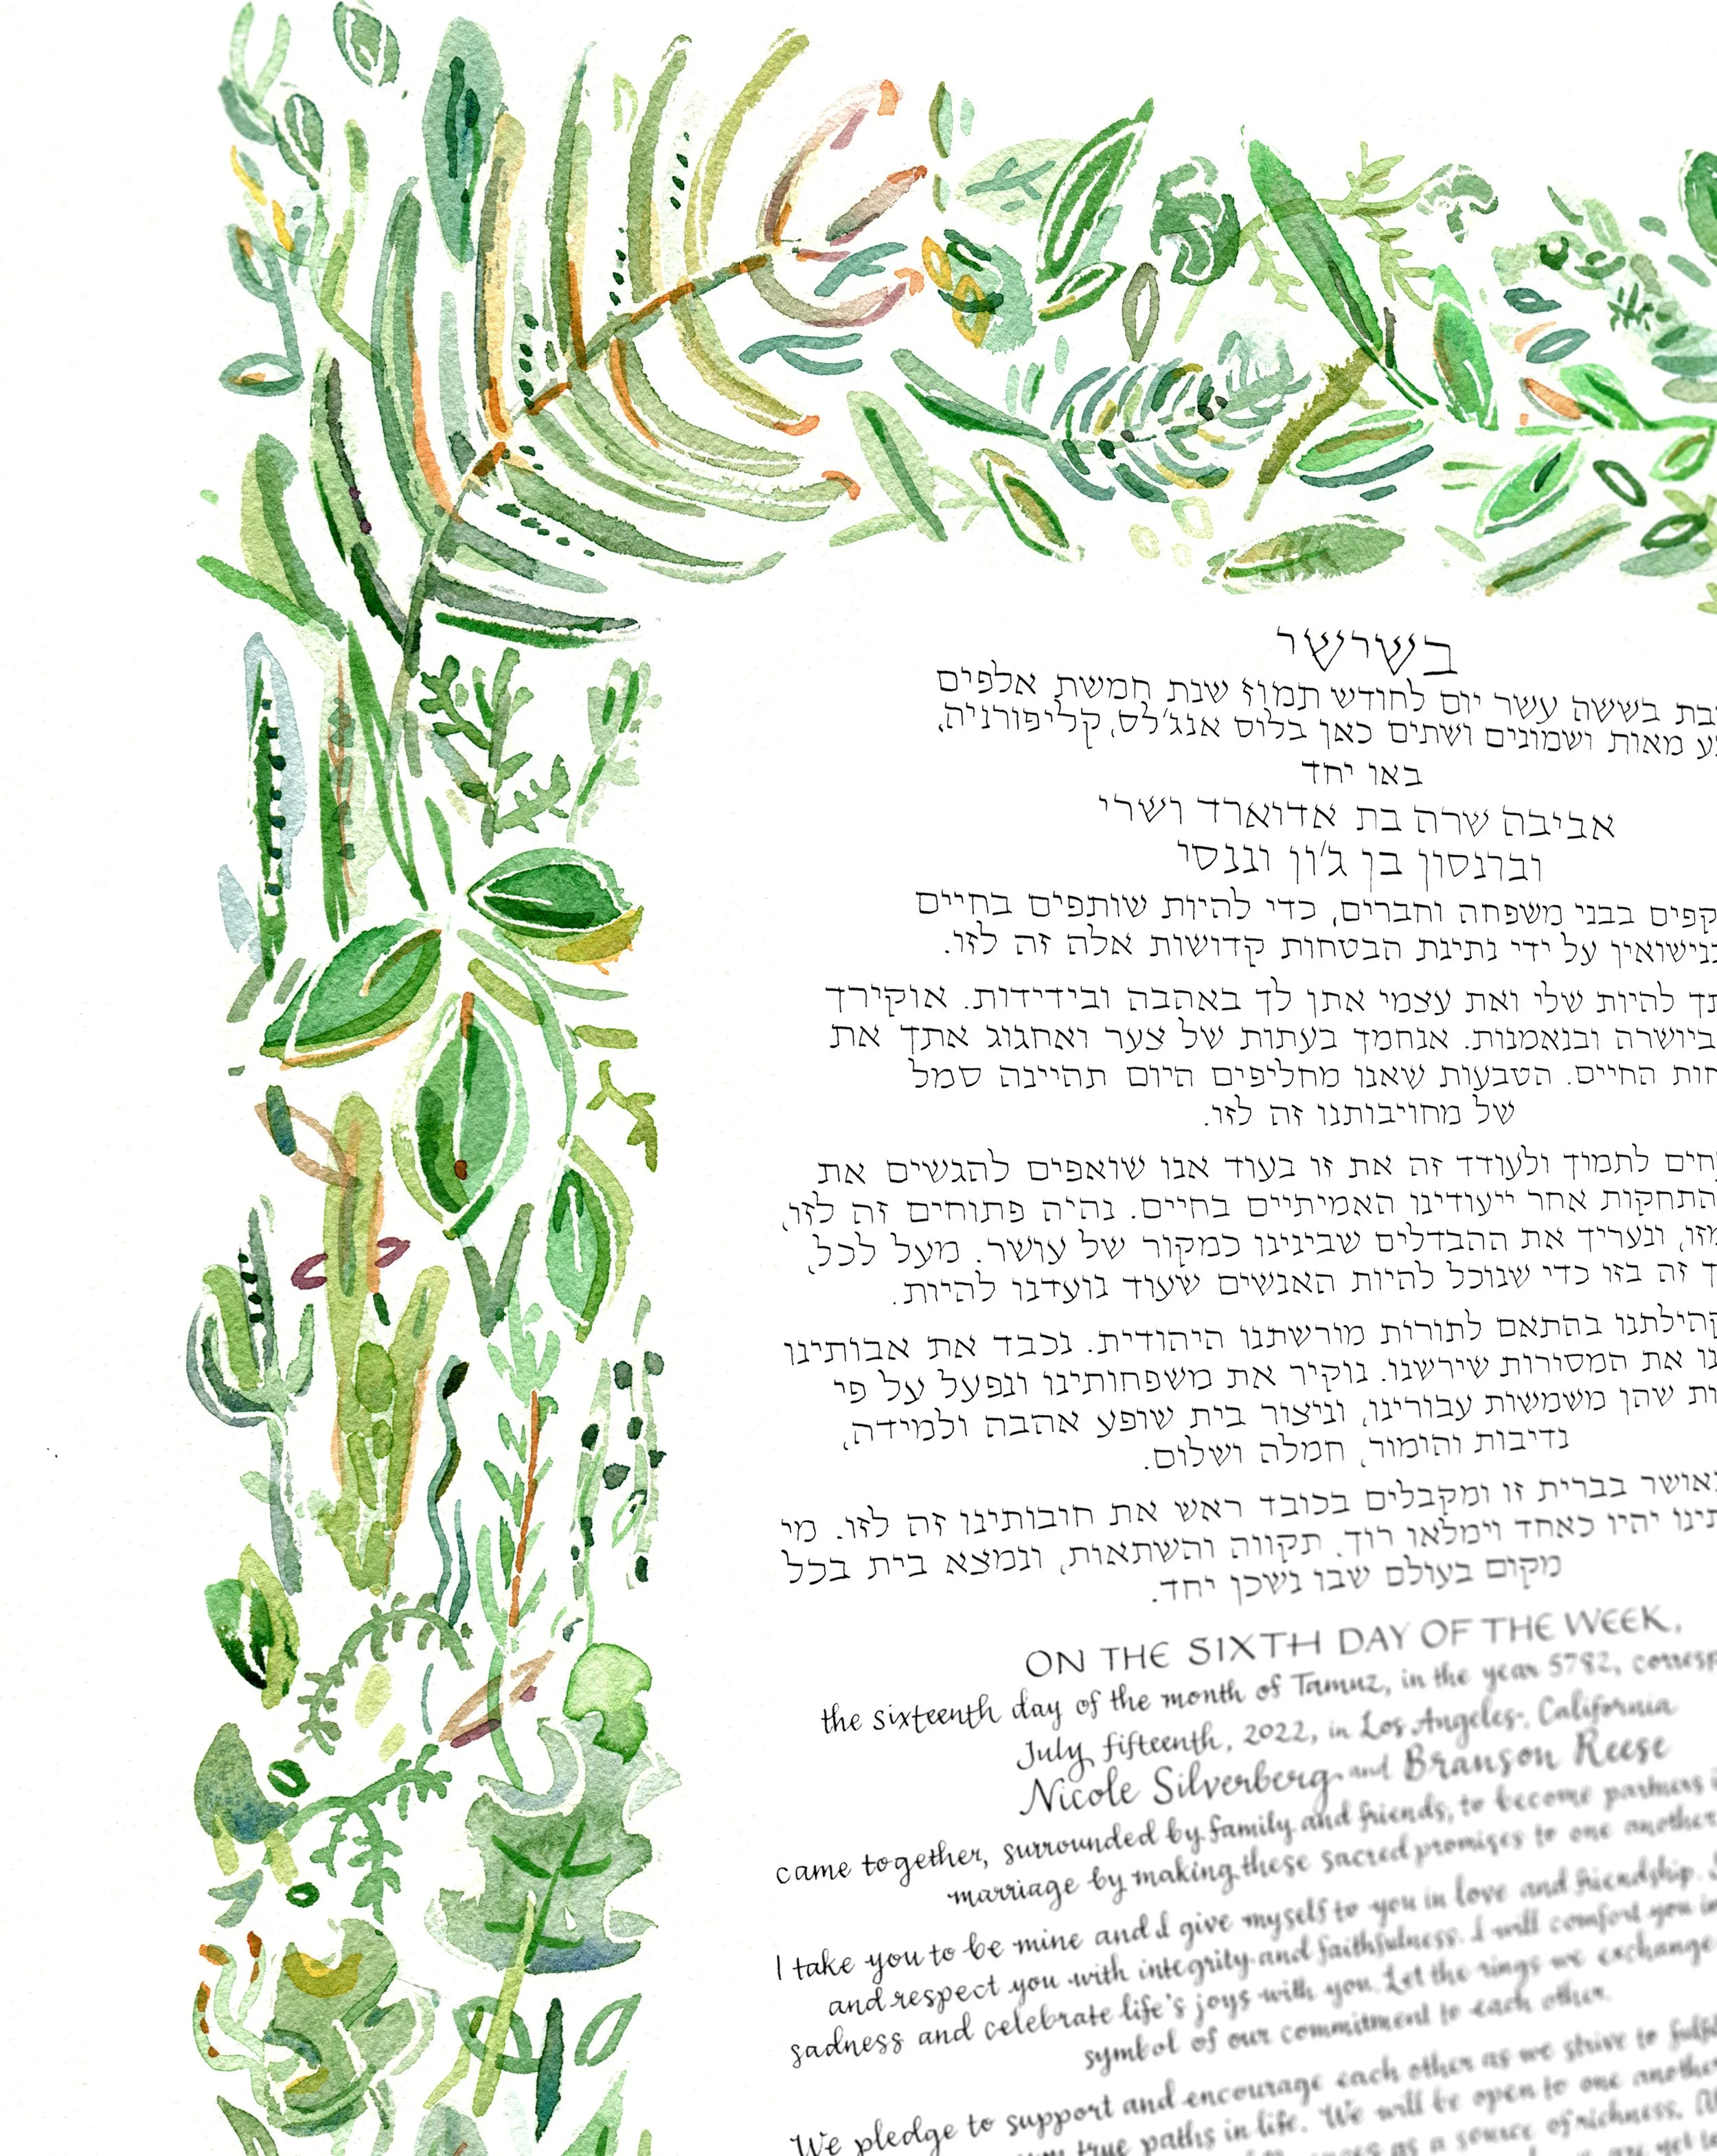 בשישי
בת בששה עשר יום לחודש תמוז שנת חמשת אלפים
מאות ושמונים ושתים כאן בלוס אנג׳לס, קליפורניה,
באו יחד
אביבה שרה בת אדוארד ושרי
וברנסון בן ג׳ון וננסי
קפים בבני משפחה וחברים, כדי להיות שותפים בחיים
בנישואין על ידי נתינת הבטחות קדושות אלה זה לזו.
תך להיות שלי ואת עצמי אתן לך באהבה ובידידות. אוקירך
ביושרה ובנאמנות. אנחמך בעתות של צער ואחגוג אתך את
חות החיים. הטבעות שאנו מחליפים היום תהיינה סמל
של מחויבותנו זה לזו.
חים לתמוך ולעודד זה את זו בעוד אנו שואפים להגשים את
התחקות אחר ייעודינו האמיתיים בחיים. נהיה פתוחים זה לזו,
מזו, ונעריך את ההבדלים שבינינו כמקור של עושר. מעל לכל,
ך זה בזו כדי שנוכל להיות האנשים שעוד נועדנו להיות.
קהילתנו בהתאם לתורות מורשתנו היהודית. נכבד את אבותינו
נו את המסירות שירשנו. נוקיר את משפחותינו ונפעל על פי
ות שהן משמשות עבורינו, וניצור בית שופע אהבה ולמידה,
נדיבות והומור, חמלה ושלום.
באושר בברית זו ומקבלים בכובד ראש את חובותינו זה לזו. מי
תינו יהיו כאחד וימלאו רוך, תקווה והשתאות, ונמצא בית בכל
מקום בעולם שבו נשכן יחד.
ON THE SIXTH DAY OF THE WEEK,
the sixteenth day of the month of Tamuz, in the year 5782, corresp
July fifteenth, 2022, in Los Angeles, California
Nicole Silverberg and Branson Reese
came together, surrounded by family and friends, to become partners i
marriage by making these sacred promises to one another
I take you to be mine and I give myself to you in love and friendship. I
and respect you with integrity and faithfulness. I will comfort you in
sadness and celebrate life's joys with you. Let the rings we exchange
symbol of our commitment to each other.
We pledge to support and encourage each other as we strive to fulfil
true paths in life. We will be open to one another
as a source of richness.